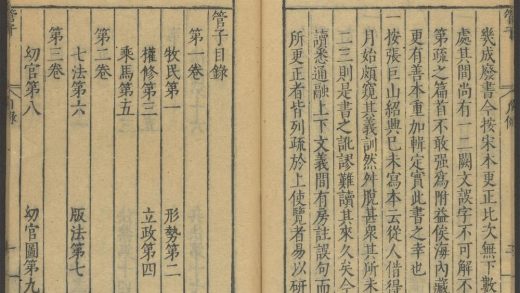 幾成廢書今按宋本更正比次無下數
處其間尚有一二闕文誤字不可解不
第疏之篇首不敢強為附益俟海內藏
更有善本重加輯定實此書之幸也
一按張巨山紹興己未寫本云從人借得
月始頗窺其義訓然舛脫甚眾其所未
二三則是書之訛謬難讀其來久矣今
讀悉通融上下文義間有房註誤句而
所更正者皆列疏於上使覽者易以研
管子目錄
第一卷
牧民第一 形勢第二
權修第三 立政第四
乘馬第五
第二卷
七法第六 版法第七
第三卷
幼官第八 幼官圖第九
管子 目錄 一